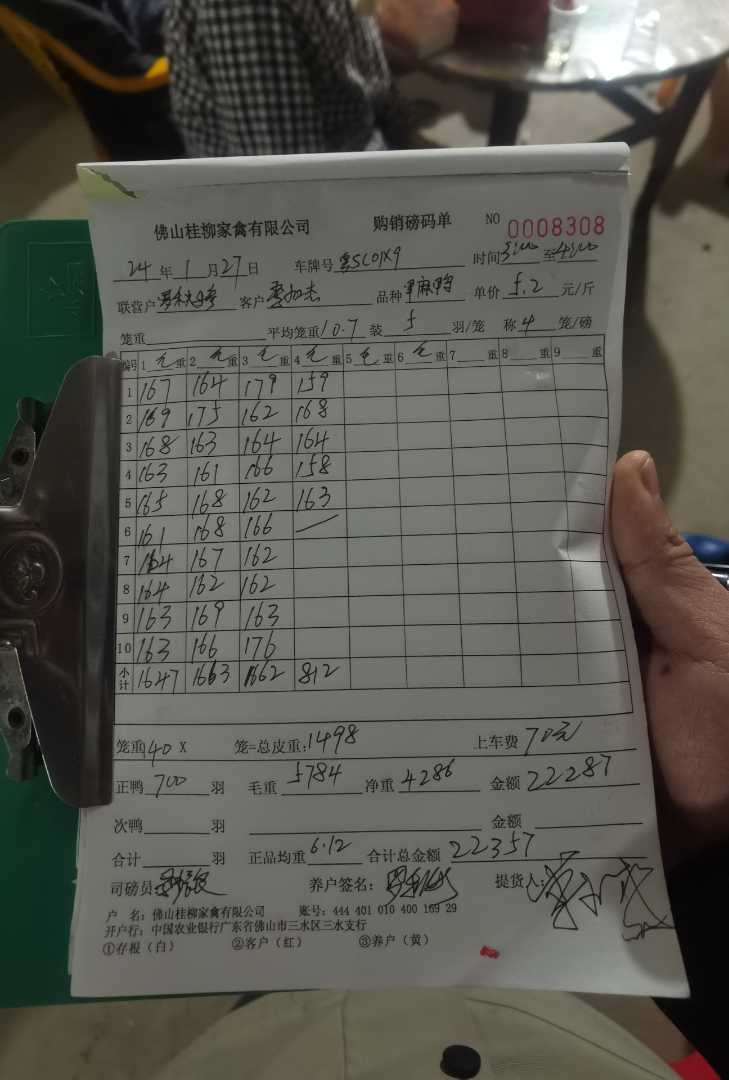 佛山桂柳家禽有限公司 购销磅码单 NO 0008308
24年1月27日 车牌号 粤SC01X9 时间 至
联营户 客户 品种 麻鸭 单价 5.2 元/斤
笼重 平均笼重 10.7 装 5 羽/笼 称 4 笼/磅
编号 1 毛 重 2 毛 重 3 毛 重 4 毛 重 5 毛 重 6 毛 重 7 重 8 重 9 重
1 167 164 179 159
2 169 175 162 168
3 168 163 164 164
4 163 161 166 158
5 165 168 162 163
6 161 168 166
7 164 167 162
8 164 162 162
9 163 169 163
10 163 166 176
小计 1647 1663 1662 812
笼重 140 X 笼=总皮重: 1498 上车费 70元
正鸭 700 羽 毛重 5784 净重 4286 金额 22287
次鸭 羽 金额
合计 羽 正品均重 6.12 合计总金额 22357
司磅员: 养户签名: 提货人:
户 名: 佛山桂柳家禽有限公司 账号: 444 401 010 400 169 29
开户行: 中国农业银行广东省佛山市三水区三水支行
①存根（白） ②客户（红） ③养户（黄）